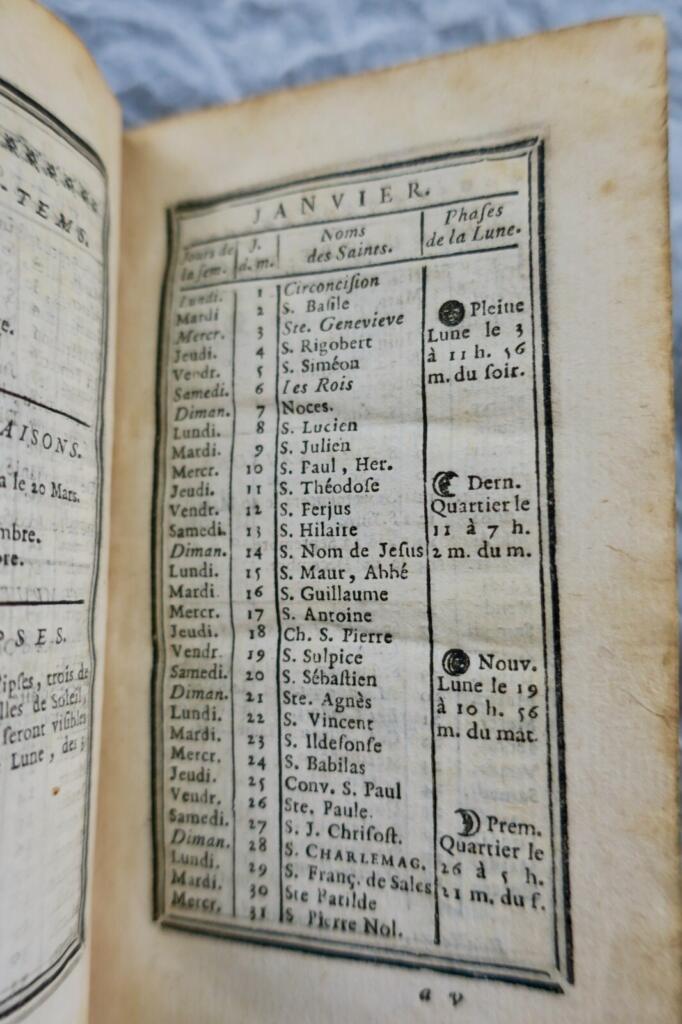 -TEMS.
e.
AISONS.
a le 20 Mars.
mbre.
bre.
PSES.
lipſes, trois de
lles de Soleil,
ſeront viſibles
Lune, des
JANVIER.
Jours de la ſem. J. d. m. Noms des Saints. Phaſes de la Lune.
Lundi. 1 Circonciſion
Mardi 2 S. Baſile
Mercr. 3 Ste. Genevieve
Jeudi. 4 S. Rigobert
Vendr. 5 S. Siméon
Samedi. 6 les Rois
Diman. 7 Noces.
Lundi. 8 S. Lucien
Mardi. 9 S. Julien
Mercr. 10 S. Paul, Her.
Jeudi. 11 S. Théodoſe
Vendr. 12 S. Ferjus
Samedi. 13 S. Hilaire
Diman. 14 S. Nom de Jeſus
Lundi. 15 S. Maur, Abbé
Mardi 16 S. Guillaume
Mercr. 17 S. Antoine
Jeudi. 18 Ch. S. Pierre
Vendr. 19 S. Sulpice
Samedi. 20 S. Sébaſtien
Diman. 21 Ste. Agnès
Lundi. 22 S. Vincent
Mardi. 23 S. Ildefonſe
Mercr. 24 S. Babilas
Jeudi. 25 Conv. S. Paul
Vendr. 26 Ste. Paule.
Samedi. 27 S. J. Chriſoſt.
Diman. 28 S. CHARLEMAG.
Lundi. 29 S. Franç. de Sales
Mardi. 30 Ste Batilde
Mercr. 31 S Pierre Nol.
Pleine
Lune le 3
à 11 h. 56
m. du ſoir.
Dern.
Quartier le
11 à 7 h.
2 m. du m.
Nouv.
Lune le 19
à 10 h. 56
m. du mat.
Prem.
Quartier le
26 à 5 h.
21 m. du ſ.
a v